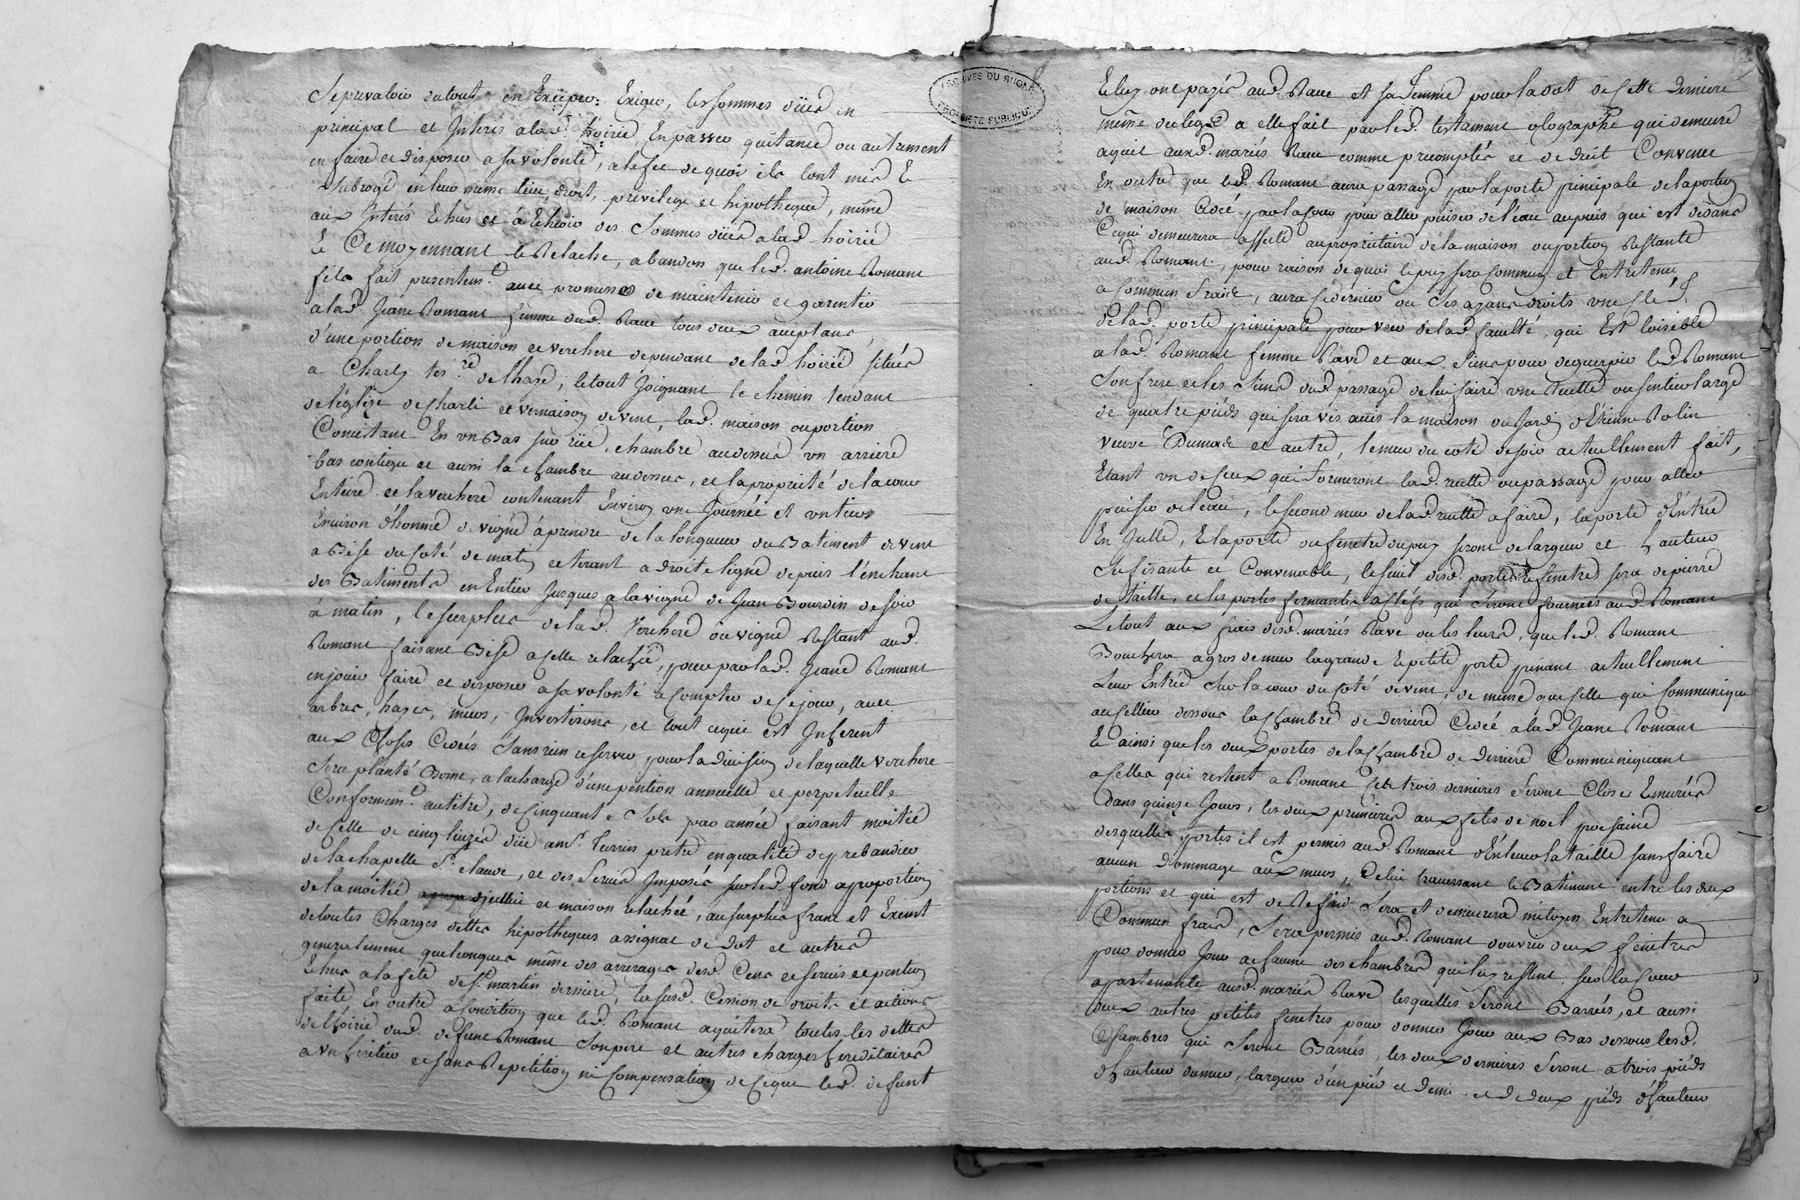 Se prevaloir du tout en Exiper, Exiger, les sommes düës en
principal et Interés a lad. hoirie, En passer quitance ou autrement
en faire et disposer a sa volonté, a leffet de quoi ils lont mis &
Subrogé en leur même lieu, droit, privilege et hipotheque, même
aux Interés Echus et à Echoir des Sommes düës a lad. hoirie
Et Ce moyennant le Relache, abandon que led. antoine Romant
fils fait presentemt. avec promesses de maintenir et garentir
a lad. Jeane Romant femme dud. Rave tous deux aceptans,
d'une portion de maison et verchere dependant de lad. hoirie situés
a Charly terre. de lhaye, le tout Joignant le chemin tendant
de l'église de Charli et vernaison de vent, lad. maison ou portion
Consistant En un Bas sur rüe, chambre au dessus un arriere
bas contigu et aussi la chambre au dessus, et la propriété de la cour
Entiere et la verchere contenant Environ une Journée et un tiers
Environ d'homme de vigne à prendre de la longueur du Batiment de vent
a Bise du Coté de matin et tirant a droite ligne depuis l'enchant
des Batiments en Entier Jusques a la vigne de Jean Bourdin de soir
à matin, le surplus de lad. Verchere ou vigne Restant aud.
Romant faisant Bise a Celle relachée, pour par lad. Jeane Romant
en jouir faire et disposer a sa volonté a Compter de ce jour, avec
arbres, hayes, murs, Investisons, et tout ce qui est Inherent
aux Choses Cedées Sans rien reserver, pour la division de laquelle verchere
Sera planté Borne, a la charge d'une pention annuelle et perpetuelle
Conformemt. au titre, de Cinquante Sols par année faisant moitié
de Celle de cinq livres düe a mr. Terrin pretre en qualité de prebandier
de la chapelle St. Claude, et des Servis Imposés sur led. fond a proportion
de la moitié d'jcelui et maison relachée, au surplus franc et Exempt
de toutes Charges dettes hipotheques assignat de Dot et autres
generalement quelconques même des arrerages desd. Cens et servis et pention
Echus a la fête de St. martin derniere, la susd. Cession de droits et actions
faite En outre a Condition que led. Romant aquitera toutes les dettes
de l'hoirie dud. defunt Romant Son pere et autres charges hereditaires
a Un Entier et sans Repetition ni Compensation de Ce que led. defunt
Et luy ont payés aud. Rave et sa Femme pour la dot de Cette derniere
même du legs a elle fait par led. testament olographe qui demeure
aquit auxd. mariés Rave comme precomptés et de droit Convenu
En outre que led. Romant aura passage par la porte principale de la portion
de maison Cedée par la Cour pour aller puiser de l'eau au puis qui est dedans
Ce qui demeurera affecté au propriétaire de la maison ou portion Restante
aud. Romant, pour raison de quoi le puy sera Commun et Entretenu
a Commun fraix, aura ce dernier ou Ses ayans droits une Clef
de lad. porte principale pour user de lad. faculté, qui Est loisible
a lad. Romant femme Rave et aux Siens pour deguerpir led. Romant
Son frere et les Siens dud. passage de lui faire une Ruette ou sentier large
de quatre pieds qui sera vis avis la maison ou Jardin d'Etienne Bolin
veuve Dumas et autre, le mur du coté de soir actuellement fait,
Etant un de Ceux qui Formeront lad. ruette ou passage pour aller
puiser de leau, le second mur de lad. ruette a faire, la porte d'Entrée
En Jcelle, & la porte ou fenetre du puy seront de largeur et hauteur
Sufisante et Convenable, le seuil desd. porte et fenetre sera de pierre
de Taille, et les portes fermantes a Clefs qui Seront fournies aud. Romant
Le tout aux frais desd. mariés Rave ou les leurs, que led. Romant
Bouchera a gros de mur la grande & petite porte prenant actuellement
Leur Entrée Sur la cour du Coté de vent, de même que Celle qui Communique
au Cellier dessous la Chambre de derriere Cedée à lad. Jeane Romant
Et ainsi que les deux portes de la Chambre de derriere Communiquant
a Celles qui restent a Romant Ces trois dernieres Seront Closes & murées
dans quinze Jours, les deux premieres aux fetes de noel prochaine
desquelles portes il est permis aud. Romant d'Enlever la taille sans faire
aucun Dommage aux murs, Celui traversant le Batiment entre les deux
portions et qui est de Refend Sera et demeurera mitoyen Entretenu a
Commun frais, Sera permis aud. Romant douvrir deux fenetres
pour donner Jour a chacune des chambres qui lui restent sur la Cour
apartenante auxd. mariés Rave lesquelles Seront Barrées, et aussi
deux autres petites fenetres pour donner Jour aux Bas dessous lesd.
Chambres qui Seront Barrées, les deux dernieres Seront a trois pieds
d'hauteur du mur, largeur d'un pied et demi et de deux pieds d'hauteur